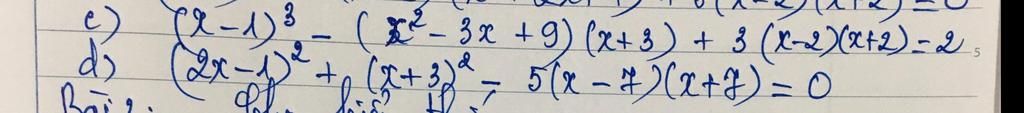 c) (x-1)³ - (x² - 3x + 9)(x+3) + 3(x-2)(x+2) = 2
d) (2x-1)² + (x+3)² - 5(x-7)(x+7) = 0
Bài 2: